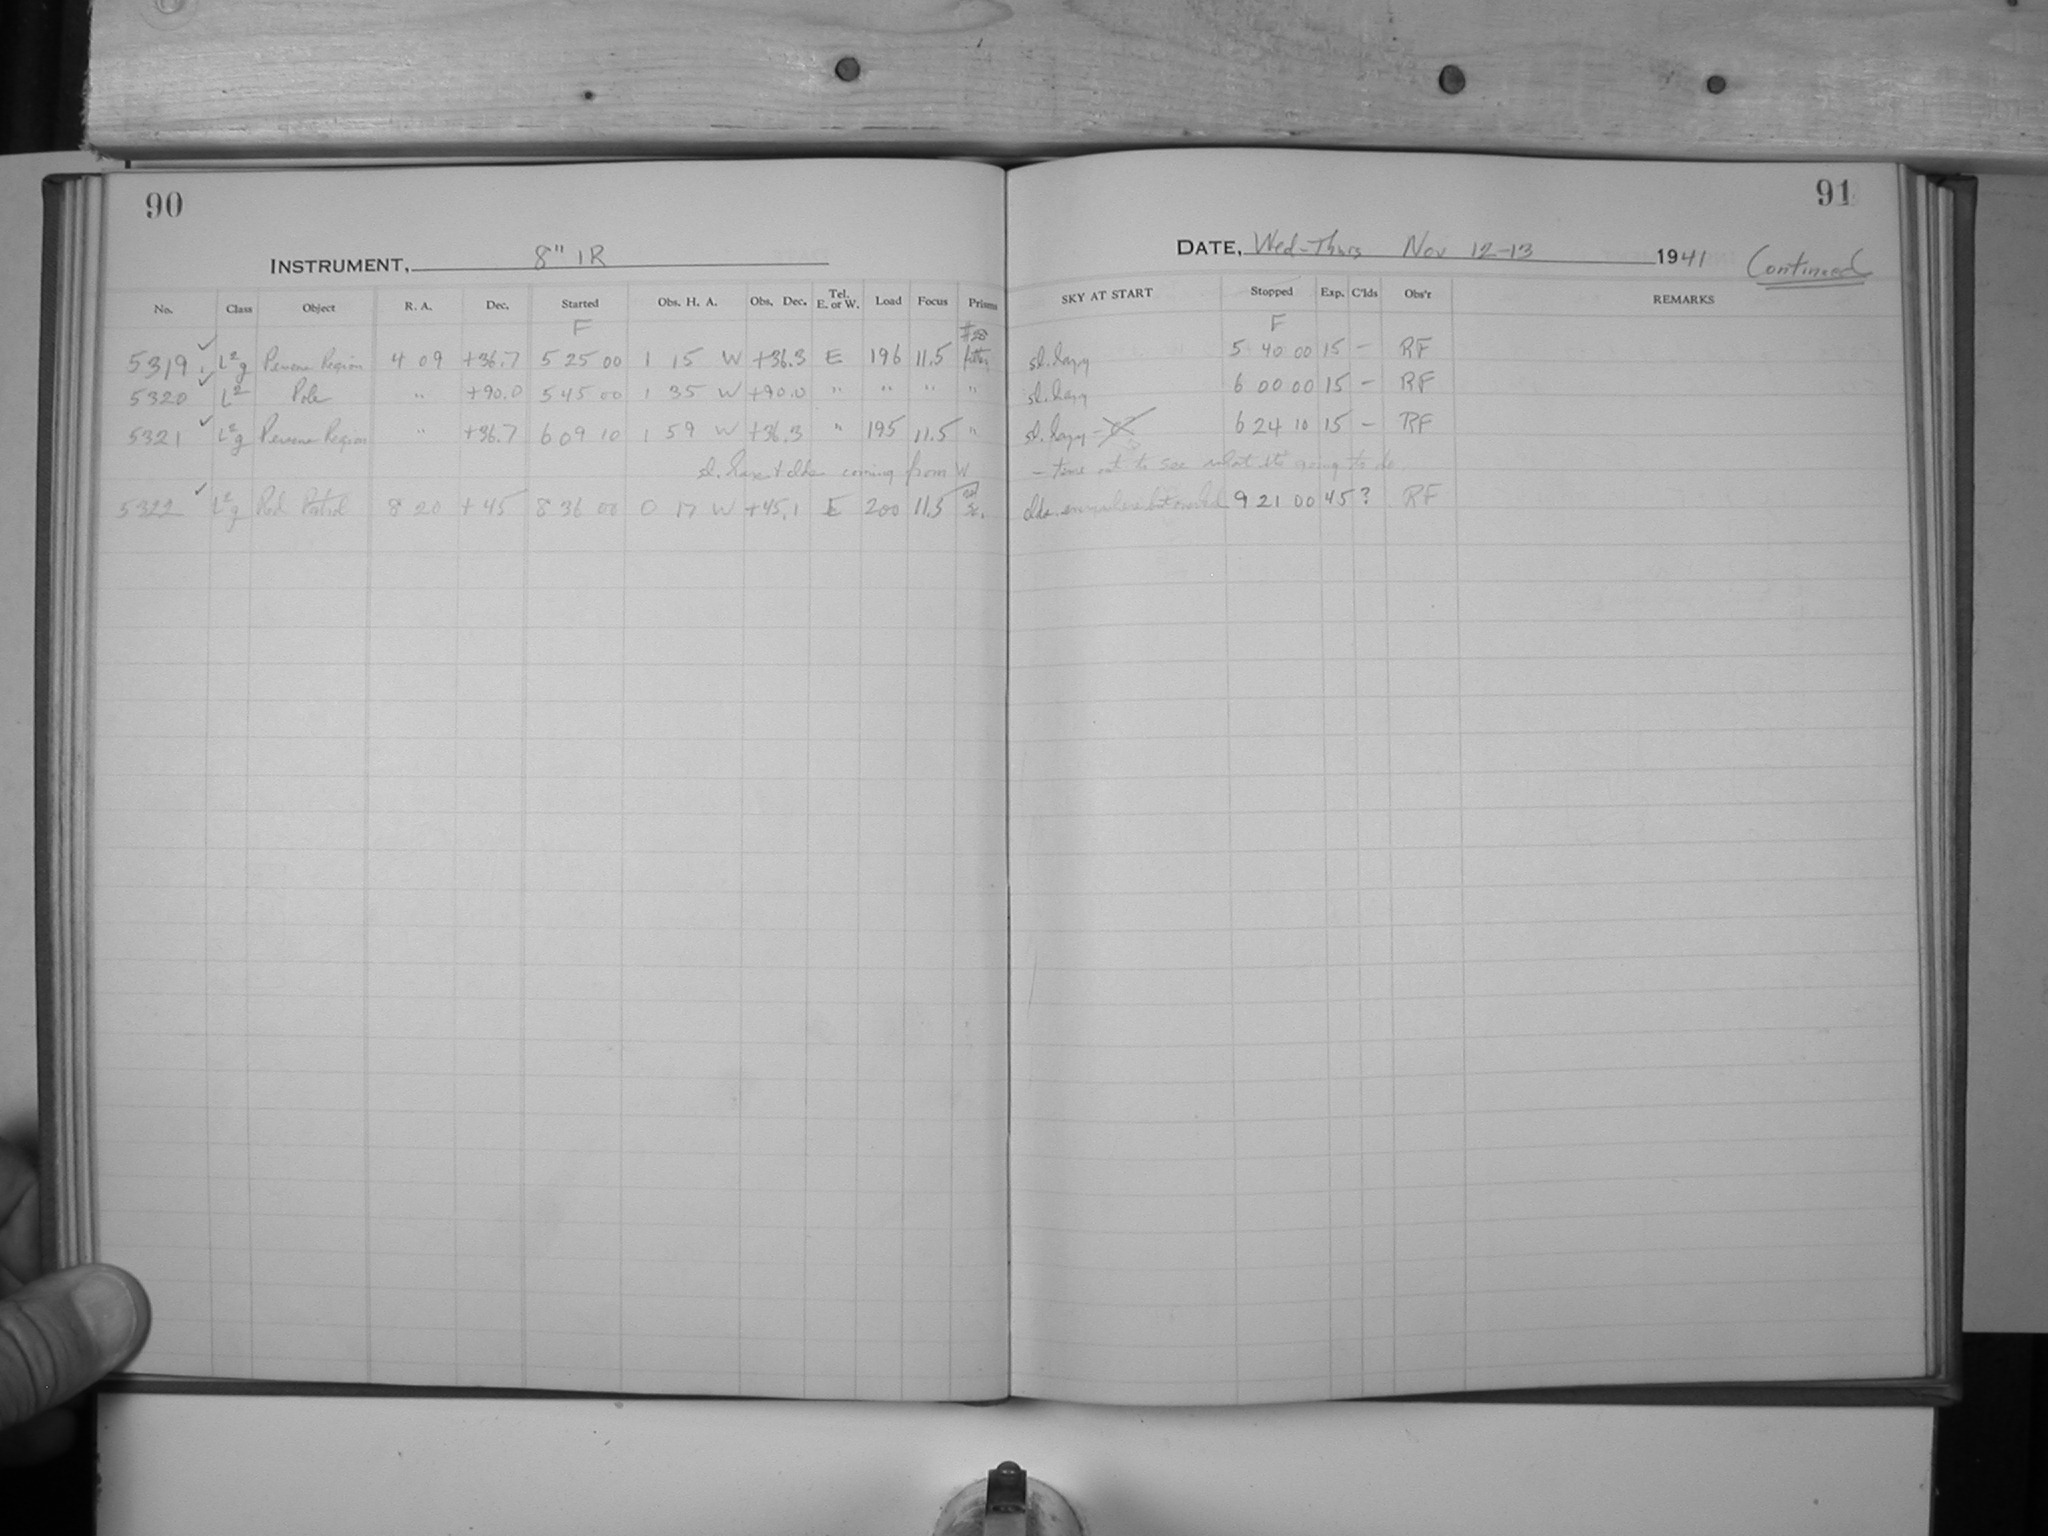 90
INSTRUMENT, 8" IR
No. Class Object R. A. Dec. Started Obs. H. A. Obs. Dec. Tel. E. or W. Load Focus Prisms
F #28
5319 L²g Perseus Region 4 09 +36.7 5 25 00 1 15 W +36.3 E 196 11.5 filter
5320 L² Pole " +90.0 5 45 00 1 35 W +90.0 " " " "
5321 L²g Perseus Region " +36.7 6 09 10 1 59 W +36.3 " 195 11.5 "
sl. haze + clds coming from W
5322 L²g Red Patrol 8 20 +45 8 36 00 0 17 W +45.1 E 200 11.5
91
DATE, Wed-Thurs Nov 12-13 1941 Continued
SKY AT START Stopped Exp. C'lds Obs'r REMARKS
F
sl. hazy 5 40 00 15 - RF
sl. hazy 6 00 00 15 - RF
sl. hazy 6 24 10 15 - RF
- time out to see what it's going to do
clds. everywhere but 9 21 00 45 ? RF